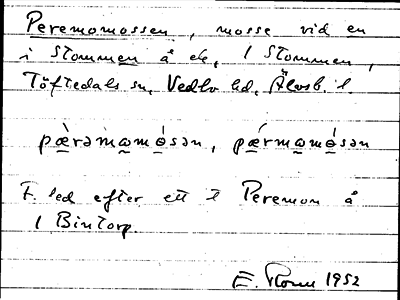 Peremomossen, mosse vid en
i Stommen å ä, 1 Stommen,
Töftedals sn, Vedbo hd, Älvsb. l.
pæ̀rəmωmósən, pǽrmωmósən
F. led efter ett t Peremon å
1 Bintorp.
E. 1952